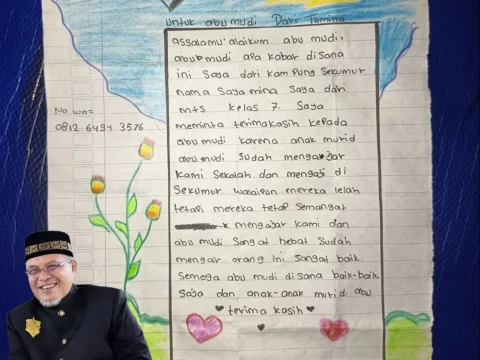 untuk abu mudi Dari Tumina
assalamu'alaikum abu mudi,
abu mudi apa kabar disana
ini Saya dari kampung Sekumur
nama Saya mina Saya dari
mts kelas 7. Saya
meminta terimakasih kepada
abu mudi karena anak murid
abu mudi Sudah mengajar
kami Sekolah dan mengaji di
Sekumur walaupun mereka lelah
tetapi mereka tetap Semangat
mengajar kami dan
abu mudi Sangat hebat Sudah
mengajar orang ini Sangat baik
Semoga abu mudi di Sana baik-baik
Saja dan anak-anak murid abu
terima kasih
No wa=
0812 6494 3576